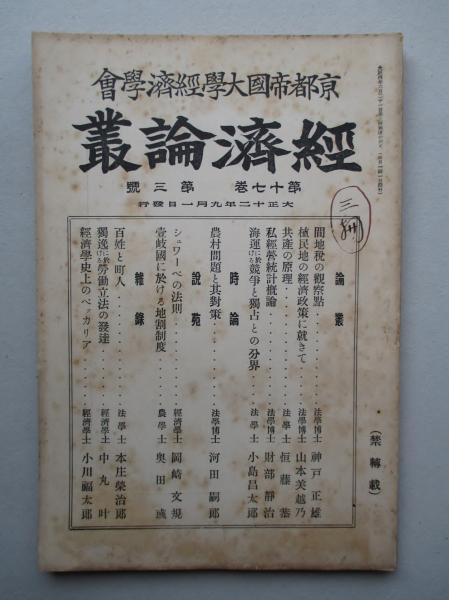 京都帝國大學經濟學會
經濟論叢
第十七巻 第三號
大正十二年九月一日發行
論叢
間地稅の觀察點・・・・法學博士 神戸正雄
植民地の經濟政策に就きて・・・・法學博士 山本美越乃
共產の原理・・・・法學士 恒藤恭
私經營統計概論・・・・法學博士 財部靜治
海運に於ける競爭と獨占との分界・・・・法學士 小島昌太郎
時論
農村問題と其對策・・・・法學博士 河田嗣郎
說苑
シュワーベの法則・・・・經濟學士 岡崎文規
壹岐國に於ける地割制度・・・・農學士 奥田彧
雜錄
百姓と町人・・・・法學士 本庄榮治郎
獨逸に於ける勞働立法の發達・・・・經濟學士 中丸叶
經濟學史上のベッカリア・・・・經濟學士 小川福太郎
(禁轉載)